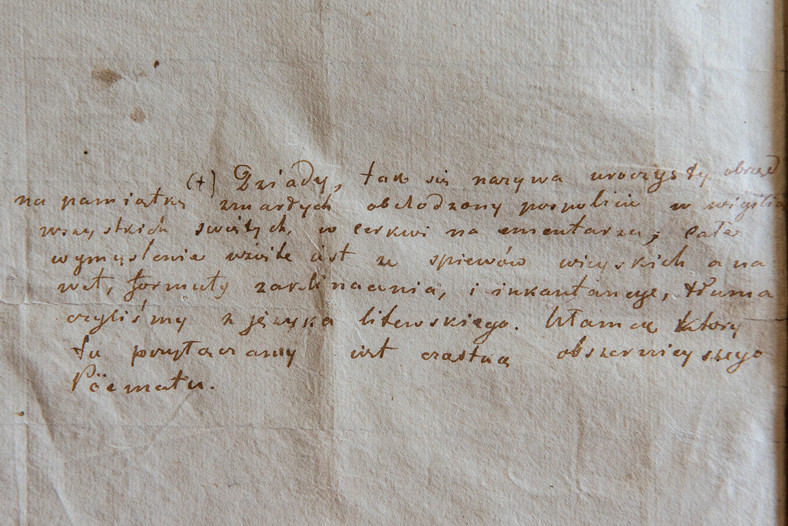 (+) Dziady, tak się nazywa uroczysty obrzęd
na pamiątkę zmarłych obchodzony pospolicie w wigilią
wszystkich swiętych, w cerkwi na cmentarzu; całe
wymyslenie wzięte jest ze spiewów wieyskich a na
wet, formuły zaklinacnia, i inkantancye, tłuma
czyliśmy z języka litewskiego. Ułamek który
tu przytaczamy jest cząstką obszernieyszego
Pöematu.